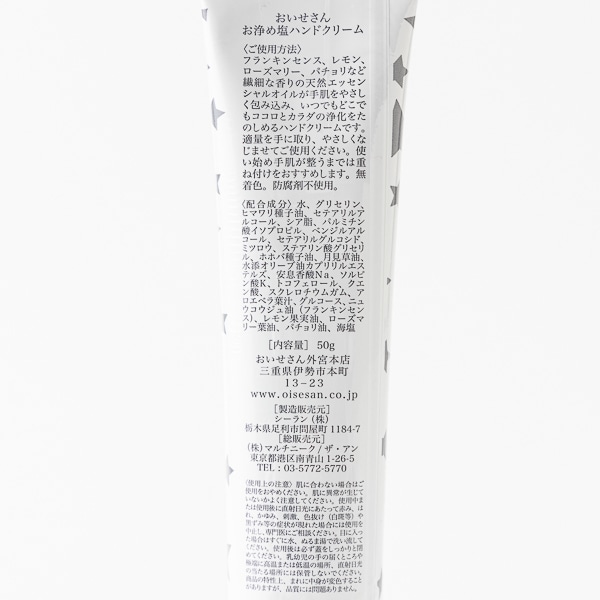 おいせさん
お浄め塩ハンドクリーム
〈ご使用方法〉
フランキンセンス、レモン、
ローズマリー、パチョリなど
繊細な香りの天然エッセン
シャルオイルが手肌をやさし
く包み込み、いつでもどこで
もココロとカラダの浄化をた
のしめるハンドクリームです。
適量を手に取り、やさしくな
じませてご使用ください。使
い始め手肌が整うまでは重
ね付けをおすすめします。無
着色。防腐剤不使用。
〈配合成分〉水、グリセリン、
ヒマワリ種子油、セテアリルア
ルコール、シア脂、パルミチン
酸イソプロピル、ベンジルアル
コール、セテアリルグルコシド、
ミツロウ、ステアリン酸グリセリ
ル、ホホバ種子油、月見草油、
水添オリーブ油カプリリルエス
テルズ、安息香酸Na、ソルビ
ン酸K、トコフェロール、クエ
ン酸、スクレロチウムガム、ア
ロエベラ葉汁、グルコース、ニュ
ウコウジュ油（フランキンセン
ス）、レモン果実油、ローズマ
リー葉油、パチョリ油、海塩
［内容量］ 50g
おいせさん外宮本店
三重県伊勢市本町
13−23
www.oisesan.co.jp
［製造販売元］
シーラン（株）
栃木県足利市問屋町 1184-7
［総販売元］
（株）マルチニーク / ザ・アン
東京都港区南青山 1-26-5
TEL : 03-5772-5770
〈使用上の注意〉肌に合わない場合はご
使用をおやめください。肌に異常が生じて
いないかよく注意してください。使用中ま
たは使用後に直射日光にあたって赤み、は
れ、かゆみ、刺激、色抜け（白斑等）や
黒ずみ等の症状が現れた場合には使用を
中止し、専門医にご相談ください。目に入っ
た場合はすぐに水、ぬるま湯で洗い流して
ください。使用後は必ず蓋をしっかりと閉
めてください。乳幼児の手の届くところや
極端に高温または低温の場所、直射日光
の当たる場所には保管しないでください。
商品の特性上、まれに中身が変色すること
がありますが、品質には問題ありません。